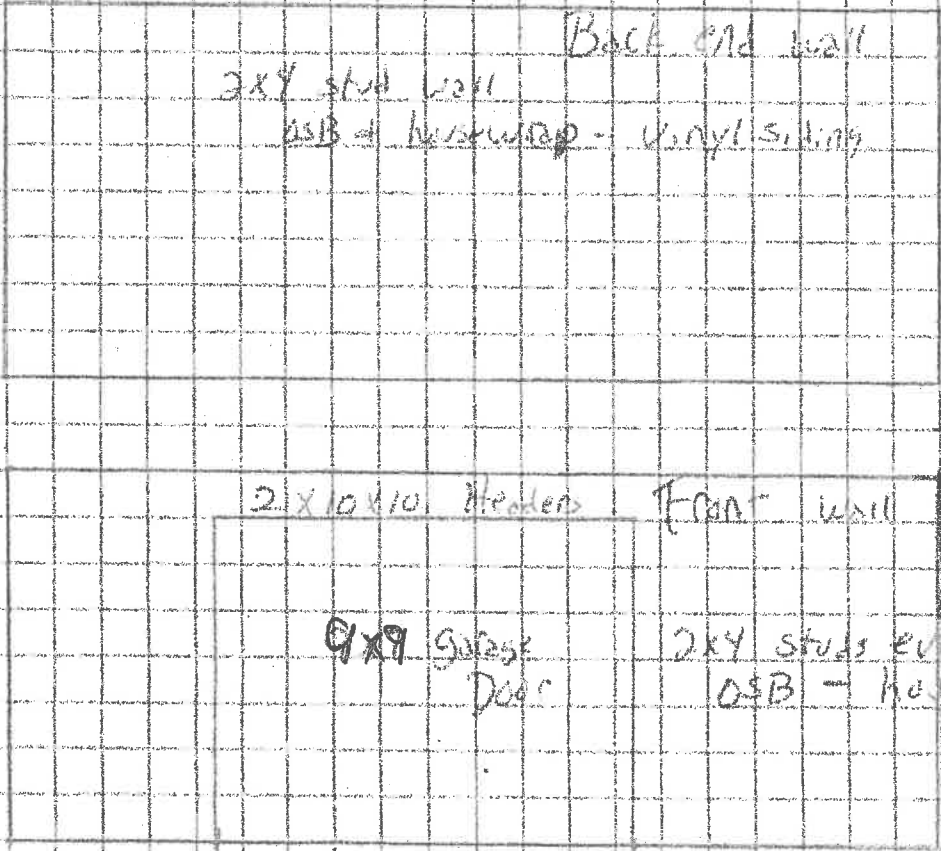 Back end wall
2x4 stud wall
OSB + housewrap - vinyl siding
2x10x10 Headers
Front wall
9x9 garage
Door
2x4 studs
OSB -